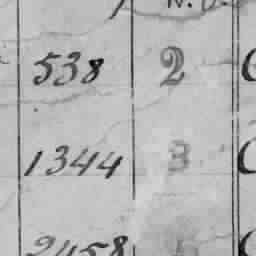 538 2
1344 3
2458